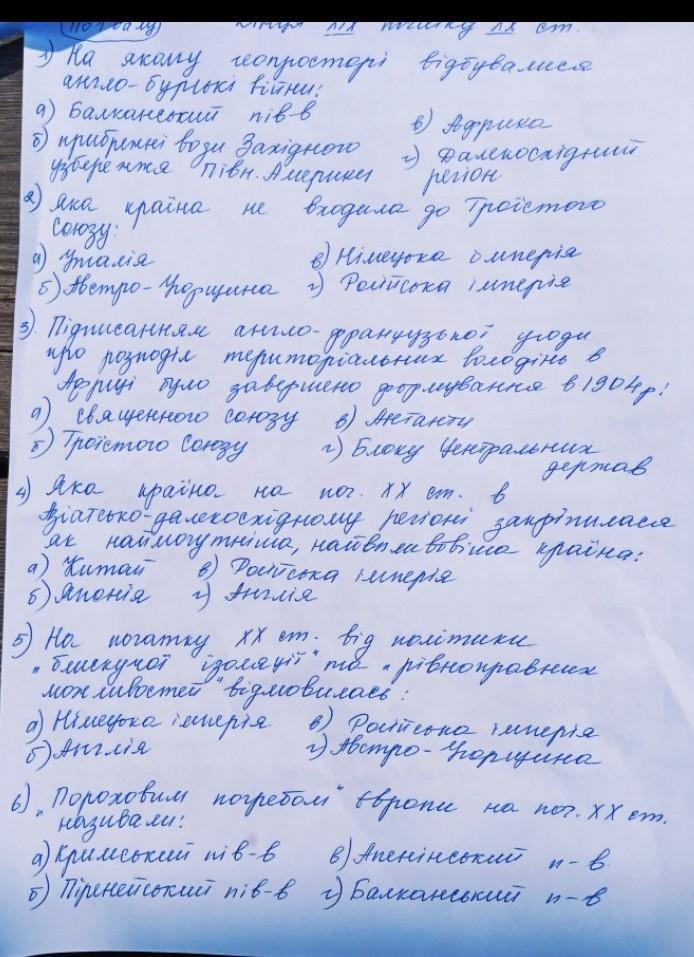 (по 1 балу) кінця XIX початку XX ст.
1) На якому геопросторі відбувалися
англо-бурські війни:
а) Балканський пів-в
в) Африка
б) прибрежні води Західного
узбережжя Півн. Америки
г) Далекосхідний
регіон
2) Яка країна не входила до Троїстого
Союзу:
а) Італія
в) Німецька імперія
б) Австро-Угорщина
г) Російська імперія
3) Підписанням англо-французької угоди
про розподіл територіальних володінь в
Африці було завершено формування в 1904р:
а) священного союзу
в) Антанти
б) Троїстого Союзу
г) Блоку Центральних
держав
4) Яка країна на поч. XX ст. в
Азіатсько-далекосхідному регіоні закріпилася
як наймогутніша, найвпливовіша країна:
а) Китай
в) Російська імперія
б) Японія
г) Англія
5) На початку XX ст. від політики
"блискучої ізоляції" та "рівноправних
можливостей" відмовилась:
а) Німецька імперія
в) Російська імперія
б) Англія
г) Австро-Угорщина
6) "Пороховим погребом" Європи на поч. XX ст.
називали:
а) Кримський пів-в
в) Апенінський п-в
б) Піренейський пів-в
г) Балканський п-в